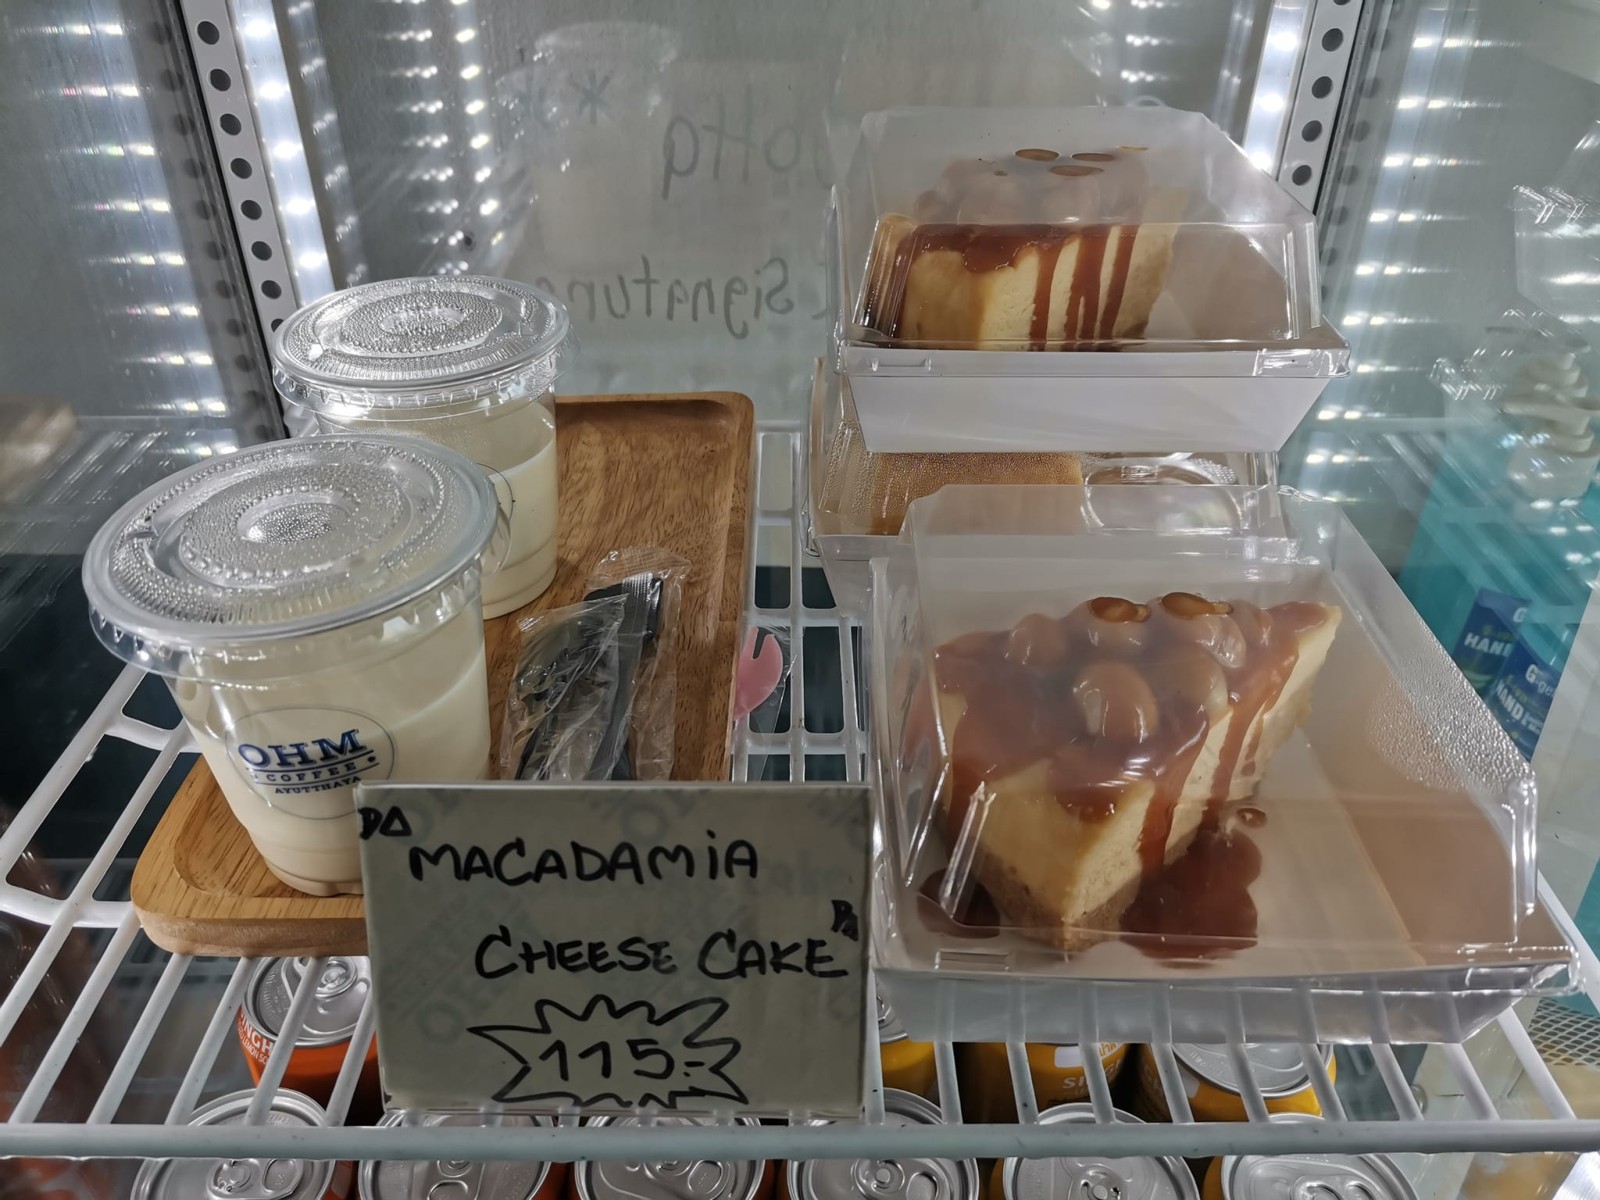 Signature
OHM
COFFEE
AYUTTHAYA
MACADAMiA
CHEESE CAKE
115.-
HAND
HAND